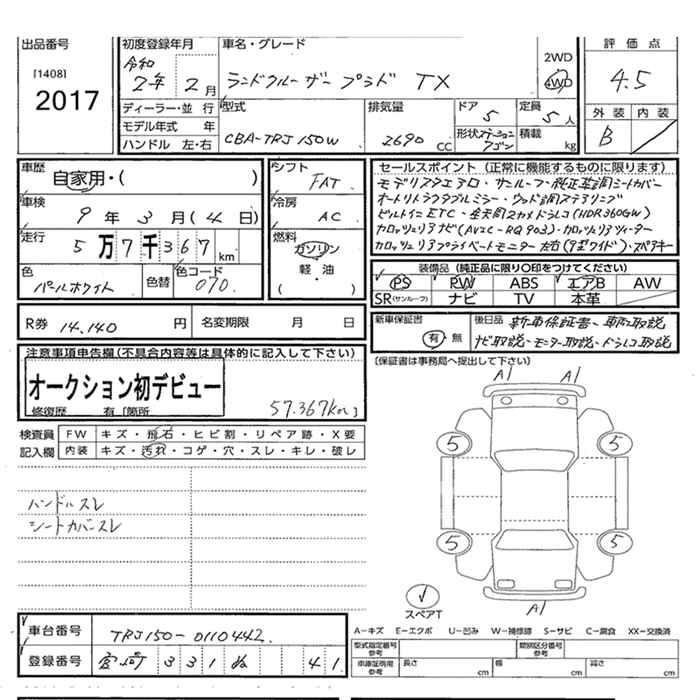 出品番号 初度登録年月 車名・グレード 評価点
[1408]
2017
令和 2年 2月 ランドクルーザー プラド TX 2WD 4WD 4.5
ディーラー・並行 型式 排気量 ドア 5 定員 5人 外装 内装
モデル年式 年 CBA-TRJ150W 2690 CC 形状 ステーションワゴン 積載 kg B
ハンドル 左・右
車歴 自家用・( ) シフト FAT セールスポイント (正常に機能するものに限ります)
モデリスタエアロ・サンルーフ・純正革調シートカバー
車検 9年3月(4日) 冷房 AC オートリトラクタブルミラー・ウッド調ステアリング
ビルトインETC・全天周2カメドラレコ(HDR360GW)
走行 5万7千367km 燃料 ガソリン 軽・油 ( ) カロッツェリアナビ(AVIC-RQ903)・カロッツェリアツィーター
カロッツェリアプライベートモニター左右(9型ワイド)・スペアキー
色 パールホワイト 色替 色コード 070 装備品 (純正品に限り○印をつけてください)
PS PW ABS エアB AW
SR(サンルーフ) ナビ TV 本革
R券 14,140円 名変期限 月 日 新車保証書 有・無 後日品 新車保証書、車両取説
ナビ取説、モニター取説、ドラレコ取説
注意事項申告欄(不具合内容等は具体的に記入して下さい) (保証書は事務局へ提出して下さい)
オークション初デビュー
修復歴 有 [箇所 57,367km]
検査員 FW キズ・飛石・ヒビ割・リペア跡・X要
記入欄 内装 キズ・汚れ・コゲ・穴・スレ・キレ・破レ
A1 A1
5 5
ハンドルスレ
シートカバースレ
5 5
スペアT A1
A−キズ E−エクボ U−凹み W−補修跡 S−サビ C−腐食 XX−交換済
車台番号 TRJ150-0110442
型式指定番号 参考 類別区分番号 参考
登録番号 宮崎 331 ぬ 41
車庫証明用 参考 長さ cm 幅 cm 高さ cm